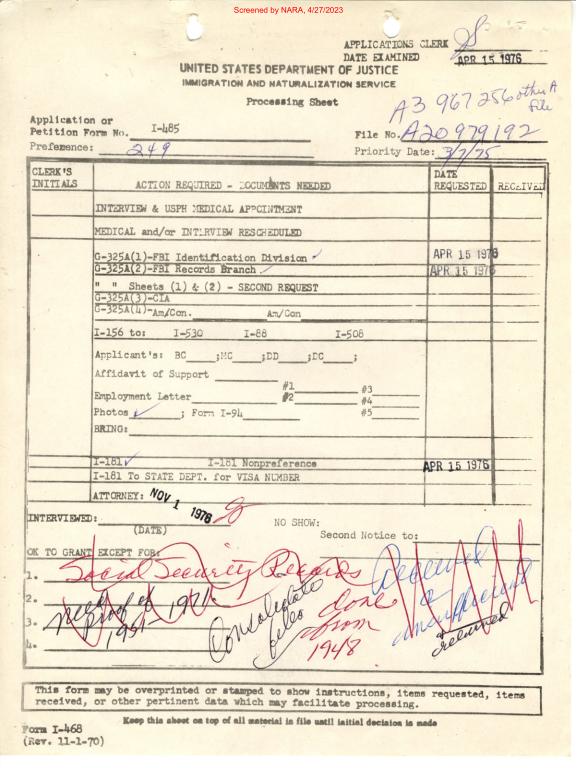 Screened by NARA, 4/27/2023
APPLICATIONS CLERK
DATE EXAMINED APR 15 1976
UNITED STATES DEPARTMENT OF JUSTICE
IMMIGRATION AND NATURALIZATION SERVICE
Processing Sheet
A3 967 256 other A file
Application or
Petition Form No. I-485
File No. A20 979 192
Preference: 249
Priority Date: 3/7/75
CLERK'S INITIALS
ACTION REQUIRED - DOCUMENTS NEEDED
DATE REQUESTED
RECEIVED
INTERVIEW & USPH MEDICAL APPOINTMENT
MEDICAL and/or INTERVIEW RESCHEDULED
G-325A(1)-FBI Identification Division ✓ APR 15 1976
G-325A(2)-FBI Records Branch ✓ APR 15 1976
" " Sheets (1) & (2) - SECOND REQUEST
G-325A(3)-CIA
G-325A(4)-Am/Con. Am/Con
I-156 to: I-530 I-88 I-508
Applicant's: BC____;MC____;DD____;DC____;
Affidavit of Support
#1 #3
Employment Letter #2 #4
Photos ✓ ; Form I-94 #5
BRING:
I-181 ✓ I-181 Nonpreference APR 15 1976
I-181 To STATE DEPT. for VISA NUMBER
ATTORNEY: NOV 1 1976
INTERVIEWED: (DATE)
NO SHOW:
Second Notice to:
OK TO GRANT EXCEPT FOR:
1. Social Security Records
2. need Proof of
3. 1951-1971
4.
Consolidate files
done from 1948
Received & insufficient
returned
This form may be overprinted or stamped to show instructions, items requested, items
received, or other pertinent data which may facilitate processing.
Keep this sheet on top of all material in file until initial decision is made
Form I-468
(Rev. 11-1-70)